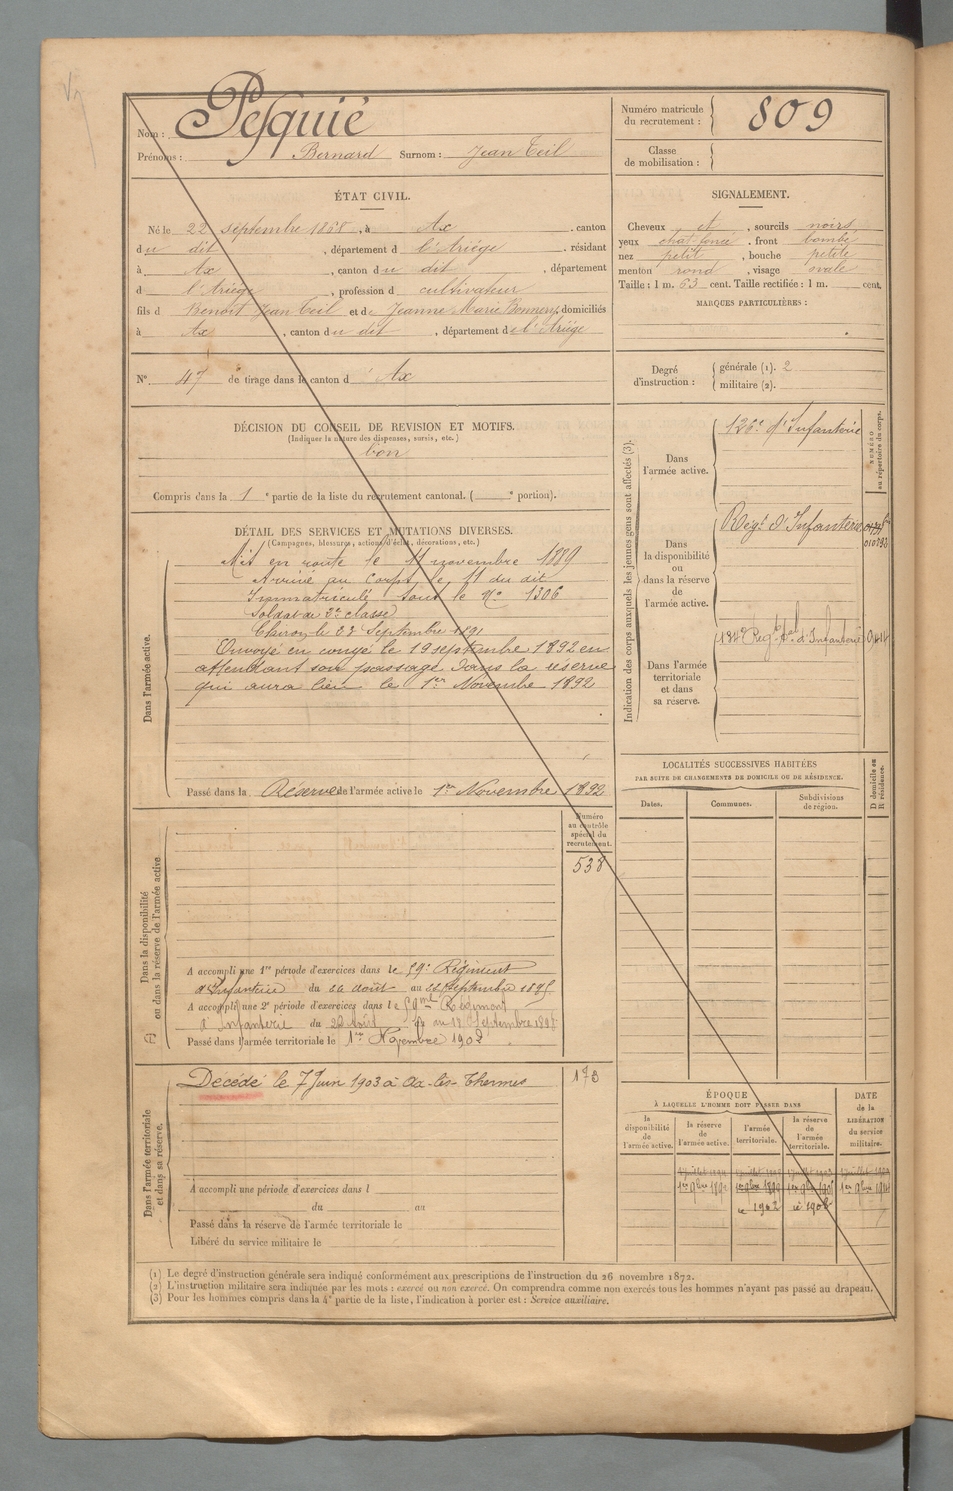 Nom : Pesquié
Prénoms : Bernard Surnom : Jean Teil
Numéro matricule du recrutement : 809
Classe de mobilisation :
ÉTAT CIVIL.
Né le 22 septembre 1868, à Ax, canton
du dit, département d l'Ariège, résidant
à Ax, canton du dit, département
d l'Ariège, profession d cultivateur
fils d Benoit Jean Teil et de Jeanne Marie Bonnery, domiciliés
à Ax, canton du dit, département de l'Ariège
N° 47 de tirage dans le canton d Ax
SIGNALEMENT.
Cheveux et, sourcils noirs
yeux chat. foncé, front bombé
nez petit, bouche petite
menton rond, visage ovale
Taille : 1 m. 63 cent. Taille rectifiée : 1 m. cent.
MARQUES PARTICULIÈRES :
Degré d'instruction : générale (1). 2
militaire (2).
DÉCISION DU CONSEIL DE REVISION ET MOTIFS.
(Indiquer la nature des dispenses, sursis, etc.)
bon
Compris dans la 1e partie de la liste du recrutement cantonal. ( e portion).
DÉTAIL DES SERVICES ET MUTATIONS DIVERSES.
(Campagnes, blessures, actions d'éclat, décorations, etc.)
Dans l'armée active.
Mis en route le 11 novembre 1889
Arrivé au Corps le 11 du dit
Immatriculé sous le No 1306
Soldat de 2e classe
le 23 Septembre 1891
Envoyé en congé le 19 septembre 1892 en
attendant son passage dans la réserve
qui aura lieu le 1er Novembre 1892
Passé dans la Réserve de l'armée active le 1er Novembre 1892
Indication des corps auxquels les jeunes gens sont affectés (3).
NUMÉRO au répertoire du corps.
Dans l'armée active.
126e d'Infanterie
Dans la disponibilité ou dans la réserve de l'armée active.
Régt d'Infanterie
Dans l'armée territoriale et dans sa réserve.
134e Régt tal d'Infanterie
LOCALITÉS SUCCESSIVES HABITÉES
PAR SUITE DE CHANGEMENTS DE DOMICILE OU DE RÉSIDENCE.
D domicile ou R résidence.
Dates. Communes. Subdivisions de région.
Numéro au contrôle spécial du recrutement.
538
Dans la disponibilité ou dans la réserve de l'armée active
A accompli une 1re période d'exercices dans le 59e Régiment
d'Infanterie du août au Septembre 1895
A accompli une 2e période d'exercices dans le 59me Régiment
d'Infanterie du Août au Septembre
Passé dans l'armée territoriale le 1er Novembre 1902
Dans l'armée territoriale et dans sa réserve.
Décédé le 7 Juin 1903 à Ax-les-Thermes
173
A accompli une période d'exercices dans l
du au
Passé dans la réserve de l'armée territoriale le
Libéré du service militaire le
ÉPOQUE
À LAQUELLE L'HOMME DOIT PASSER DANS
la disponibilité de l'armée active.
la réserve de l'armée active.
l'armée territoriale.
la réserve de l'armée territoriale.
DATE de la LIBÉRATION du service militaire.
1er 9bre 1892
1902
1908
(1) Le degré d'instruction générale sera indiqué conformément aux prescriptions de l'instruction du 26 novembre 1872.
(2) L'instruction militaire sera indiquée par les mots : exercé ou non exercé. On comprendra comme non exercés tous les hommes n'ayant pas passé au drapeau.
(3) Pour les hommes compris dans la 4e partie de la liste, l'indication à porter est : Service auxiliaire.